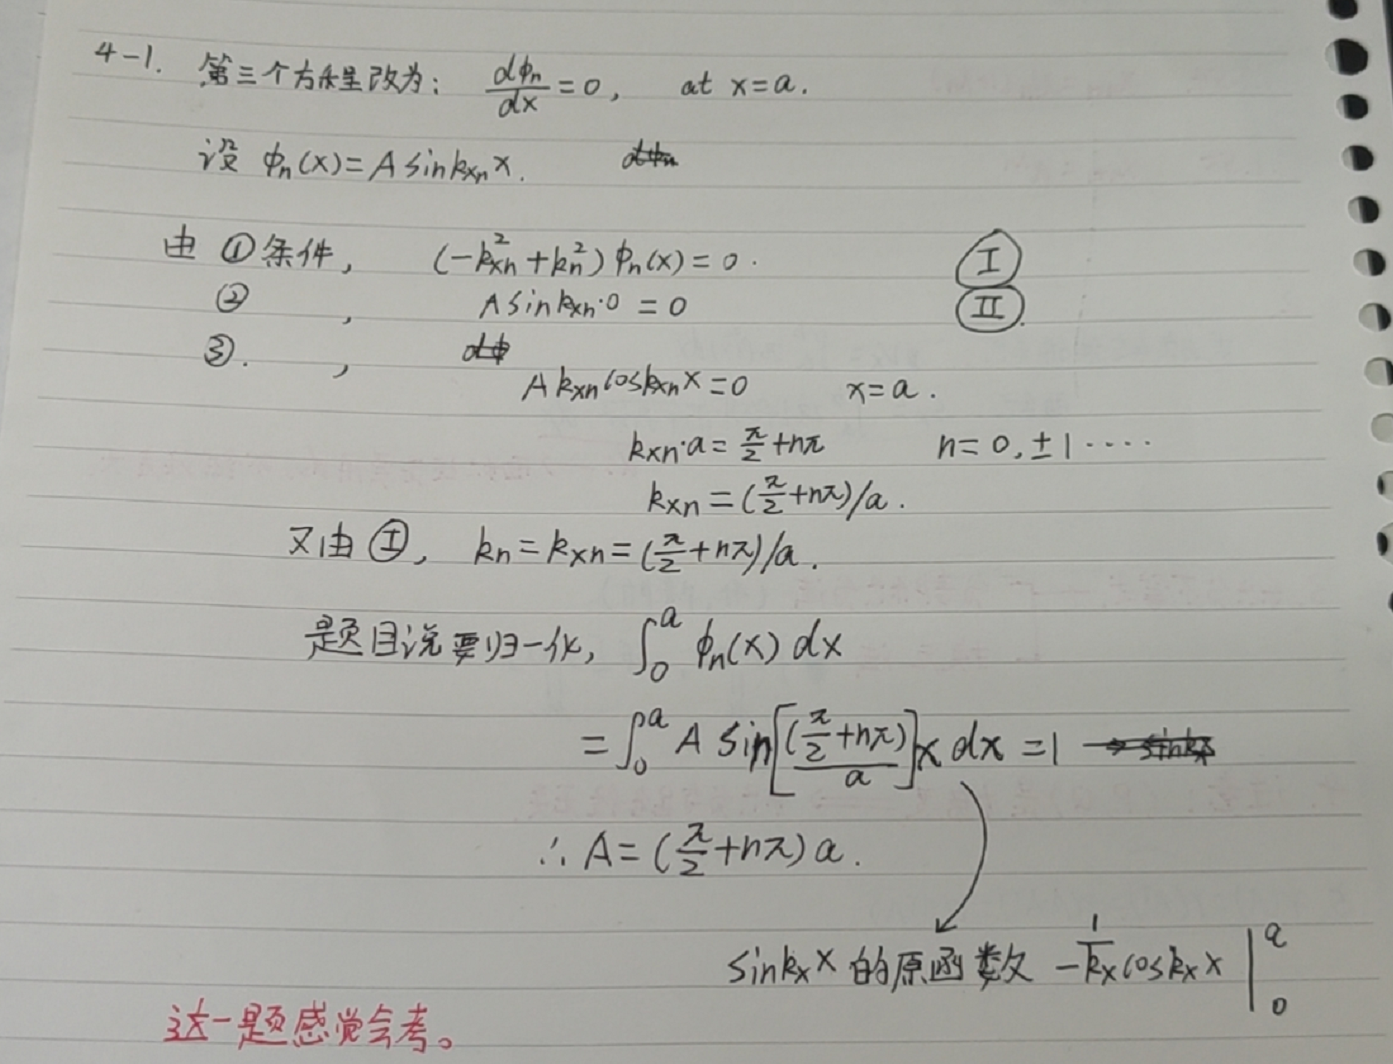 4-1. 第三个方程改为: dϕn/dx = 0, at x=a.
设 ϕn(x)=A sin kxn x.
由 ①条件, (-kxn² + kn²) ϕn(x) = 0. Ⅰ
② , A sin kxn·0 = 0 Ⅱ.
③. ,
A kxn cos kxn x = 0 x=a.
kxn·a = π/2 + nπ n=0, ±1 ····
kxn = (π/2 + nπ)/a.
又由 Ⅰ, kn = kxn = (π/2 + nπ)/a.
题目说要归一化, ∫₀ᵃ ϕn(x) dx
= ∫₀ᵃ A sin[(π/2 + nπ)/a]x dx = 1
∴ A = (π/2 + nπ) a.
sin kx x 的原函数 -1/kx cos kx x |₀ᵃ
这一题感觉会考。